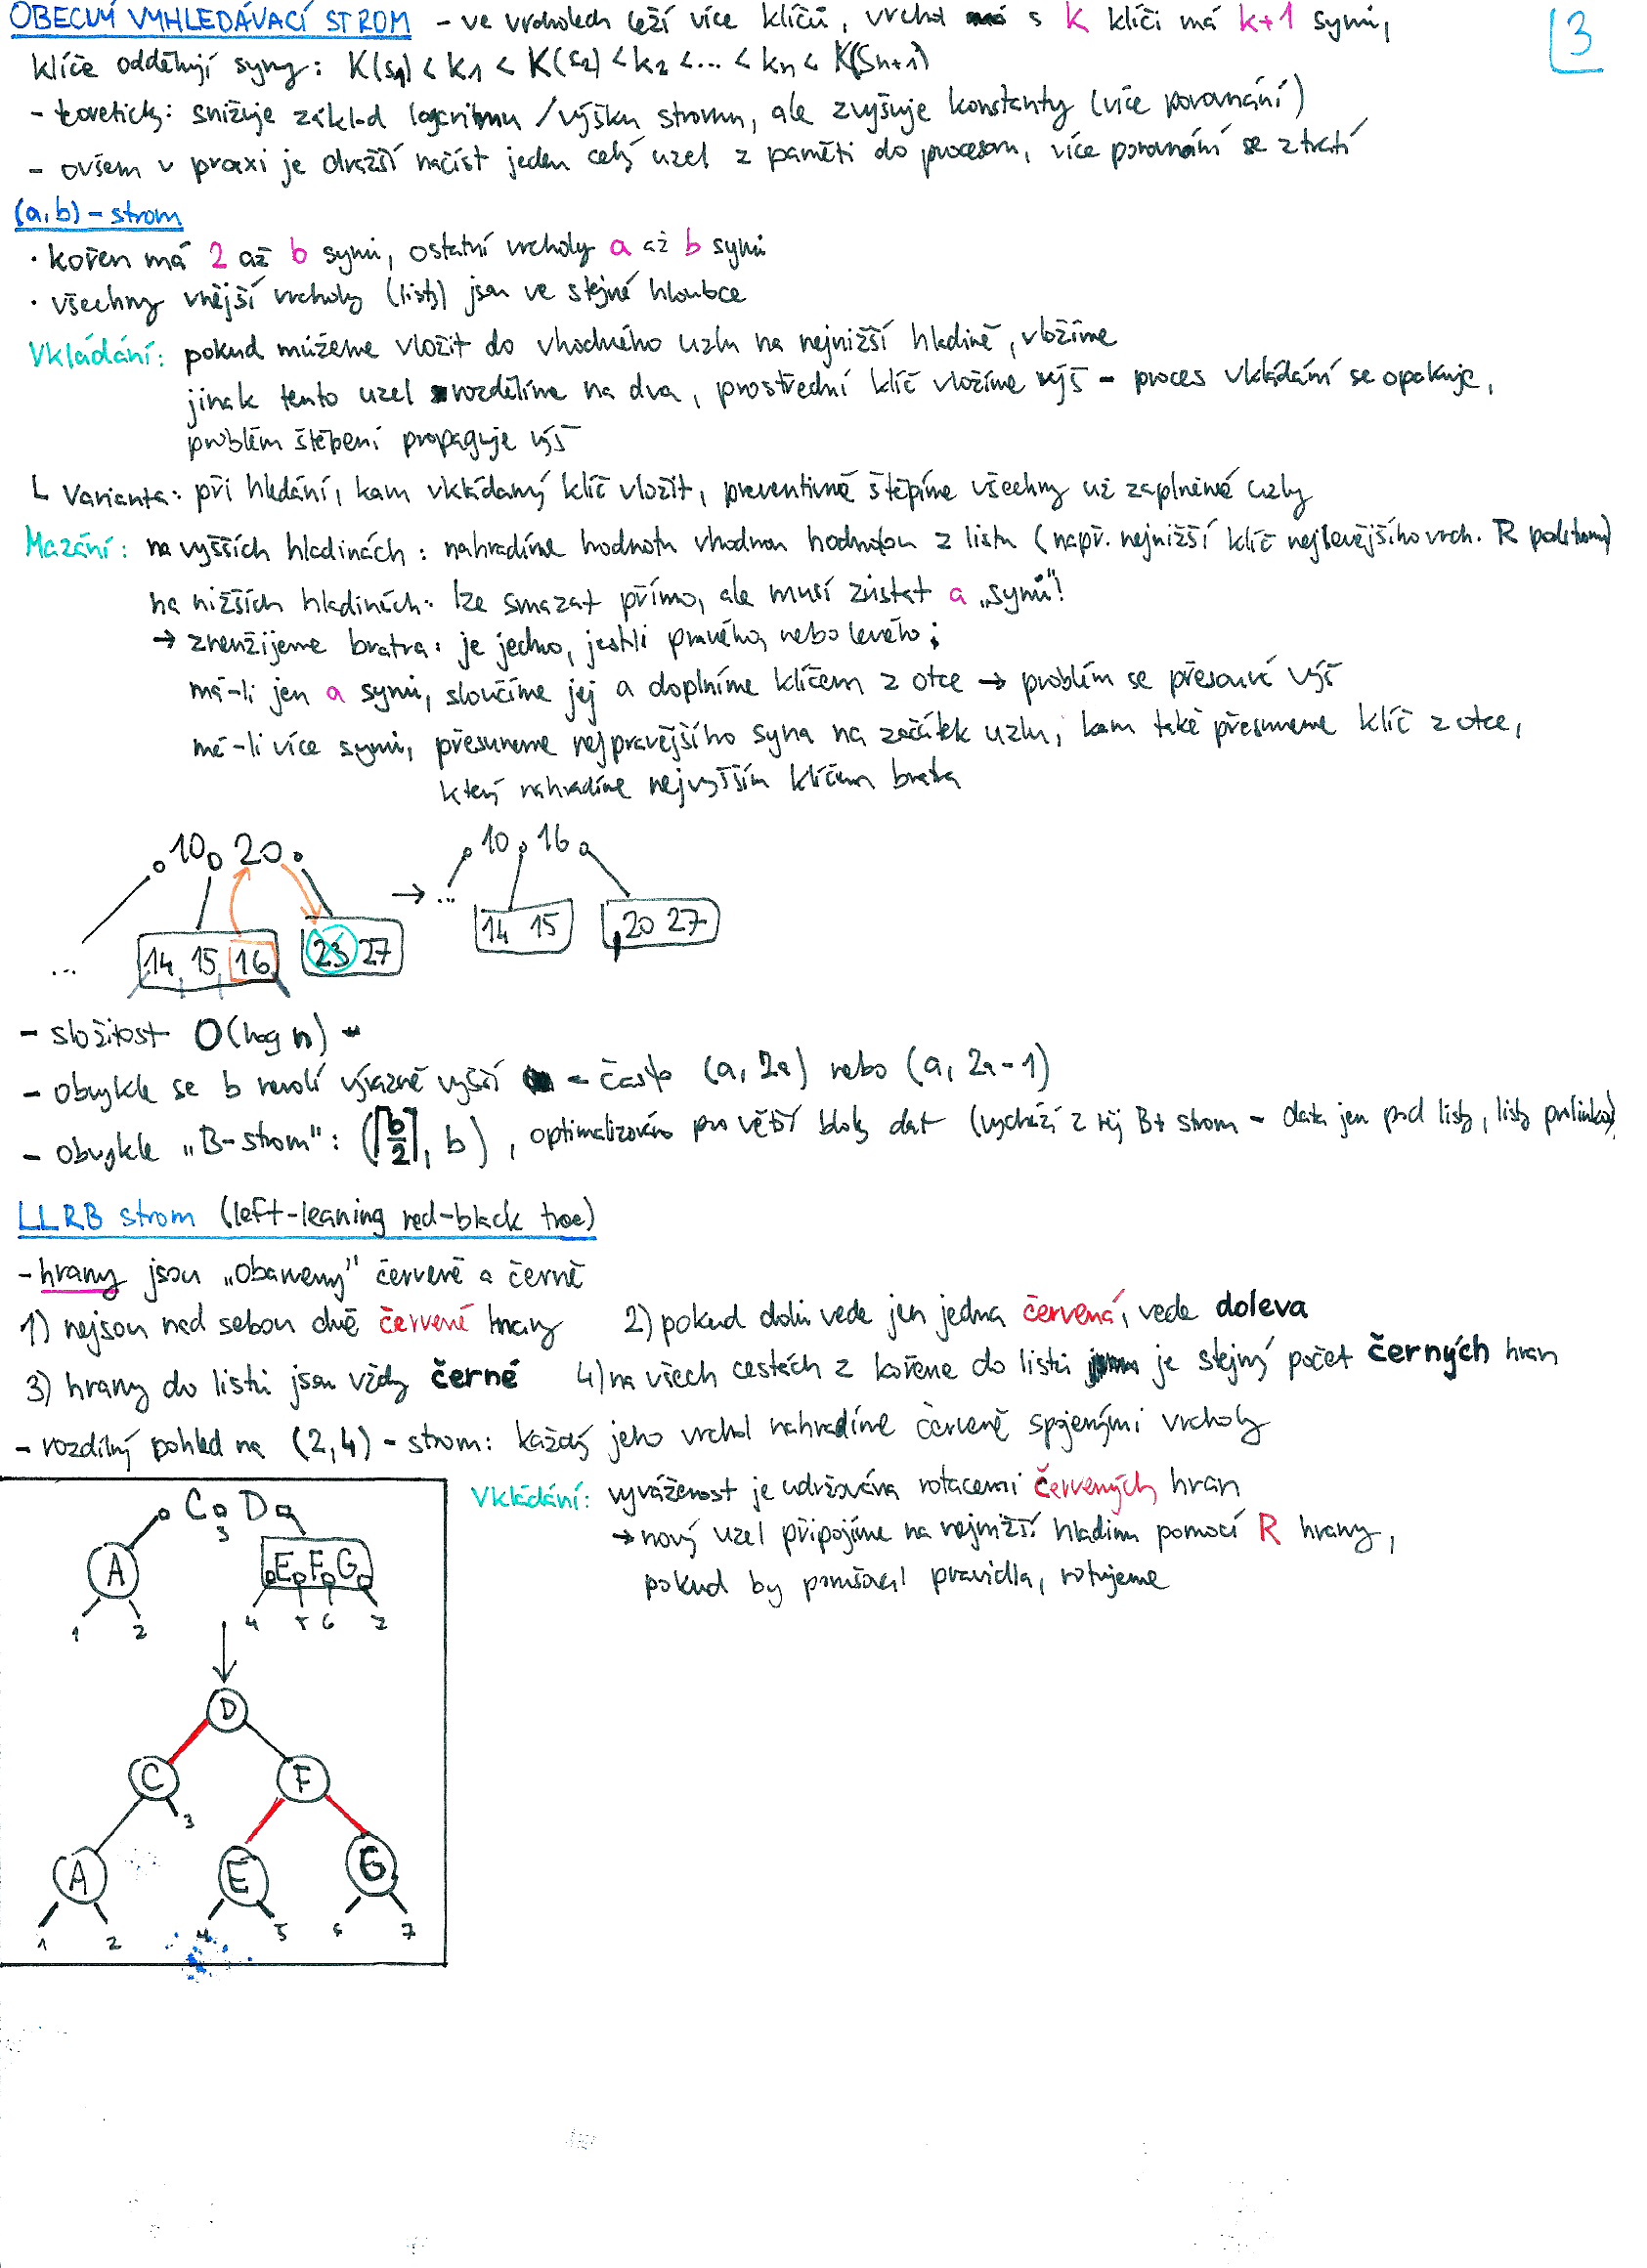 OBECNÝ VYHLEDÁVACÍ STROM - ve vrcholech leží více klíčů, vrchol s k klíči má k+1 synů,
3
klíče oddělují syny: K(s1) < k1 < K(s2) < k2 < ... < kn < K(sn+1)
- teoreticky: snižuje základ logaritmu / výšku stromu, ale zvyšuje konstanty (více porovnání)
- ovšem v praxi je dražší načíst jeden celý uzel z paměti do procesoru, více porovnání se ztratí
(a,b) - strom
· kořen má 2 až b synů, ostatní vrcholy a až b synů
· všechny vnější vrcholy (listy) jsou ve stejné hloubce
Vkládání: pokud můžeme vložit do vhodného uzlu na nejnižší hladině, vložíme
jinak tento uzel rozdělíme na dva, prostřední klíč vložíme výš - proces vkládání se opakuje,
problém štěpení propaguje výš
Varianta: při hledání, kam vkládaný klíč vložit, preventivně štěpíme všechny už zaplněné uzly
Mazání: na vyšších hladinách: nahradíme hodnotu vhodnou hodnotou z listu (např. nejnižší klíč nejlevějšího vrch. R podstromu)
na nižších hladinách: lze smazat přímo, ale musí zůstat a „synů"!
→ zmenšíjeme bratra: je jedno, jestli pravého, nebo levého;
má-li jen a synů, sloučíme jej a doplníme klíčem z otce → problém se přesouvá výš
má-li více synů, přesuneme nejpravějšího syna na začátek uzlu, kam také přesuneme klíč z otce,
který nahradíme nejvyšším klíčem bratra
10 20
10 16
→
...
14 15 16
23 27
...
14 15
20 27
- složitost O(log n)
- obvykle se b nevolí výrazně vyšší - často (a, 2a) nebo (a, 2a-1)
- obvykle „B-strom": (⌈b/2⌉, b), optimalizováno pro větší bloky dat (vychází z něj B+ strom - data jen pod listy, listy prolinkované)
LLRB strom (left-leaning red-black tree)
- hrany jsou „obarveny" červeně a černě
1) nejsou nad sebou dvě červené hrany 2) pokud dolů vede jen jedna červená, vede doleva
3) hrany do listů jsou vždy černé 4) na všech cestách z kořene do listů je stejný počet černých hran
- rozdílný pohled na (2,4) - strom: každý jeho vrchol nahradíme červeně spojenými vrcholy
Vkládání: vyváženost je udržována rotacemi červených hran
→ nový uzel připojíme na nejnižší hladinu pomocí R hrany,
pokud by porušoval pravidla, rotujeme
C D
3
A
E F G
1 2
4 5 6 7
D
C F
3
A E G
1 2 4 5 6 7